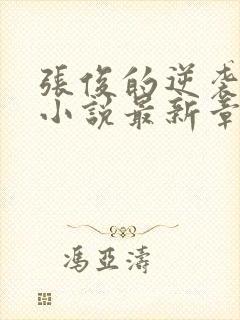 張俊的逆袭
小說最新章
馮亞濤